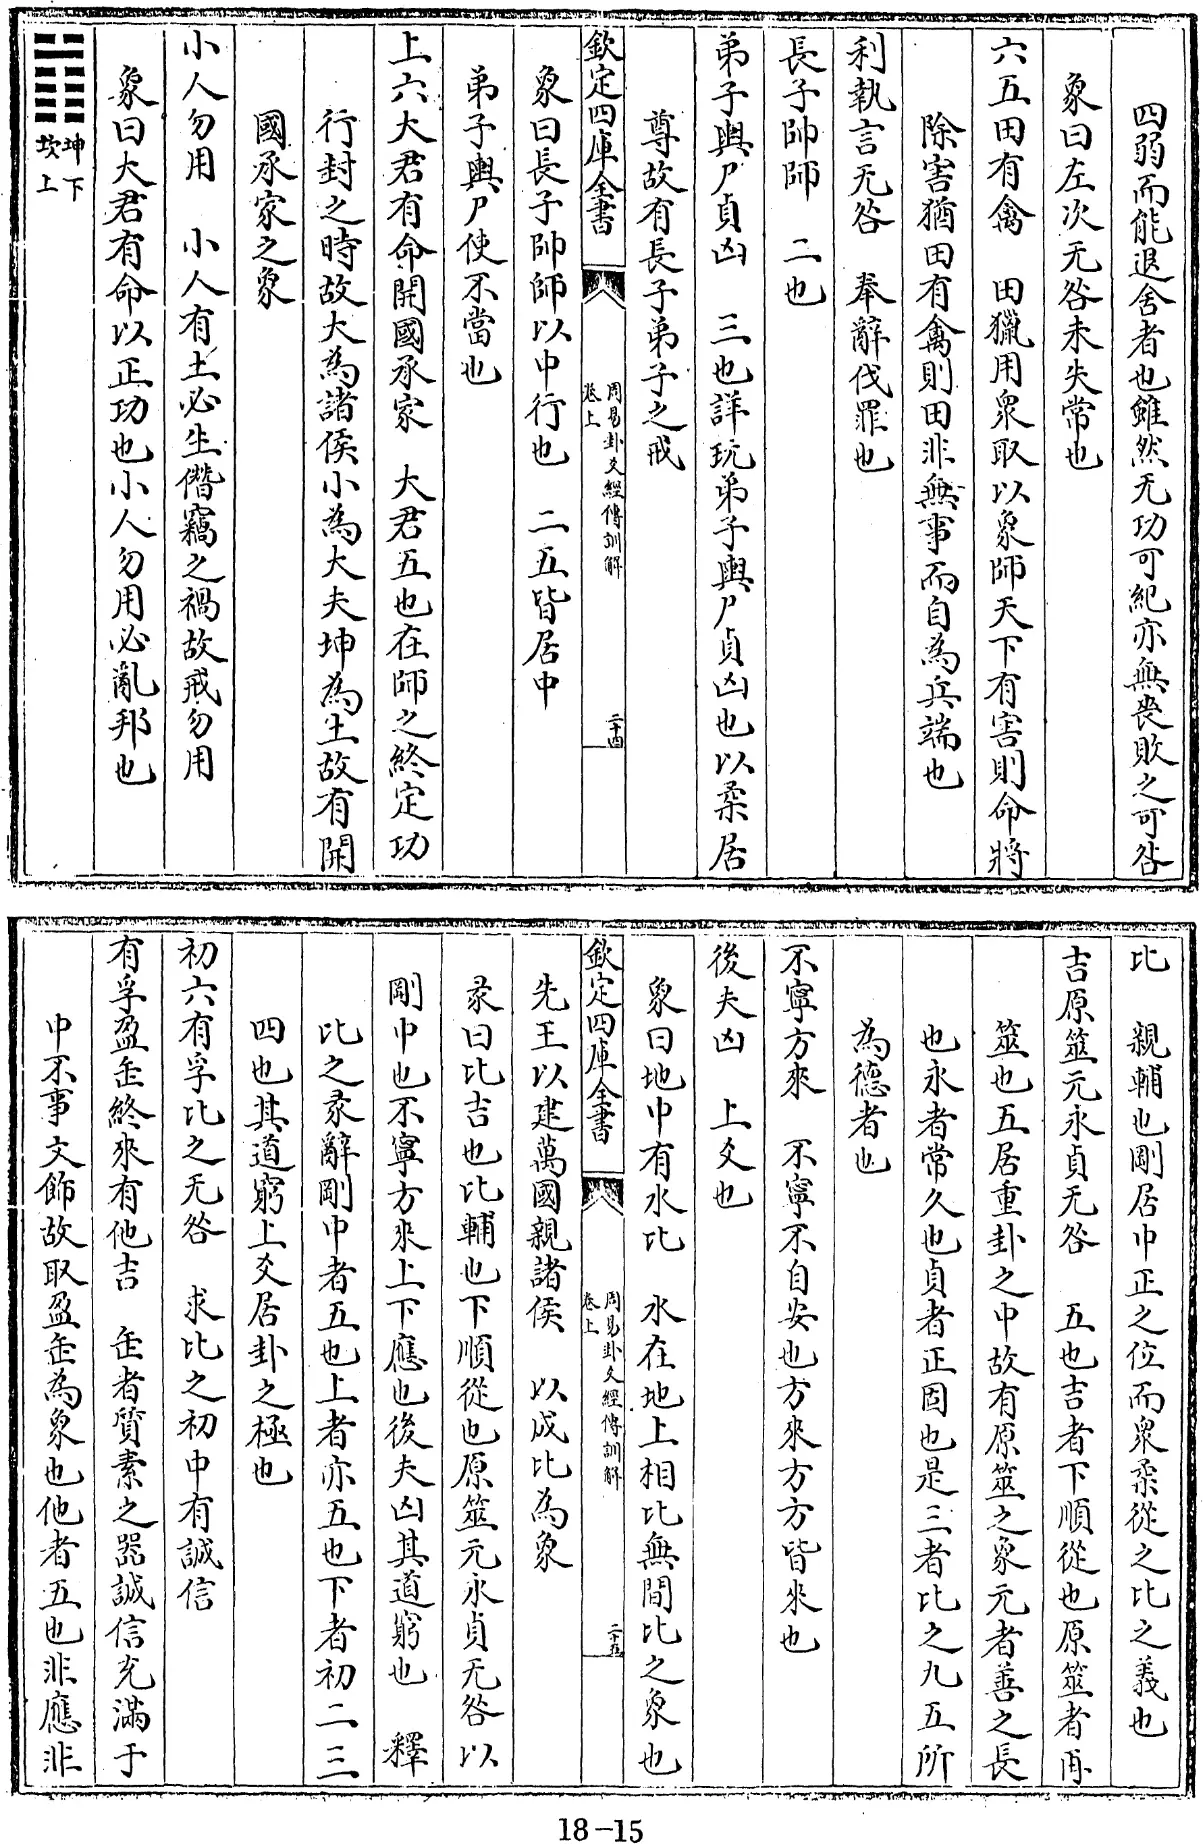 四弱而能退舍者也雖然无功可紀亦無喪敗之可咎
象曰左次无咎未失常也
六五田有禽　田獵用衆取以象師天下有害則命將
除害猶田有禽則田非無事而自為兵端也
利執言无咎　奉辭伐罪也
長子帥師　二也
弟子輿尸貞凶　三也詳玩弟子輿尸貞凶也以柔居
尊故有長子弟子之戒
欽定四庫全書
周易卦爻經傳訓解
卷上
二十四
象曰長子帥師以中行也　二五皆居中
弟子輿尸使不當也
上六大君有命開國承家　大君五也在師之終定功
行封之時故大為諸侯小為大夫坤為土故有開
國承家之象
小人勿用　小人有土必生僭竊之禍故戒勿用
象曰大君有命以正功也小人勿用必亂邦也
䷇
坤下
坎上
比　親輔也剛居中正之位而衆柔從之比之義也
吉原筮元永貞无咎　五也吉者下順從也原筮者再
筮也五居重卦之中故有原筮之象元者善之長
也永者常久也貞者正固也是三者比之九五所
為德者也
不寧方來　不寧不自安也方來方方皆來也
後夫凶　上爻也
象曰地中有水比　水在地上相比無間比之象也
欽定四庫全書
周易卦爻經傳訓解
卷上
二十五
先王以建萬國親諸侯　以成比為象
彖曰比吉也比輔也下順從也原筮元永貞无咎以
剛中也不寧方來上下應也後夫凶其道窮也　釋
比之彖辭剛中者五也上者亦五也下者初二三
四也其道窮上爻居卦之極也
初六有孚比之无咎　求比之初中有誠信
有孚盈缶終來有他吉　缶者質素之器誠信充滿于
中不事文飾故取盈缶為象也他者五也非應非
18-15